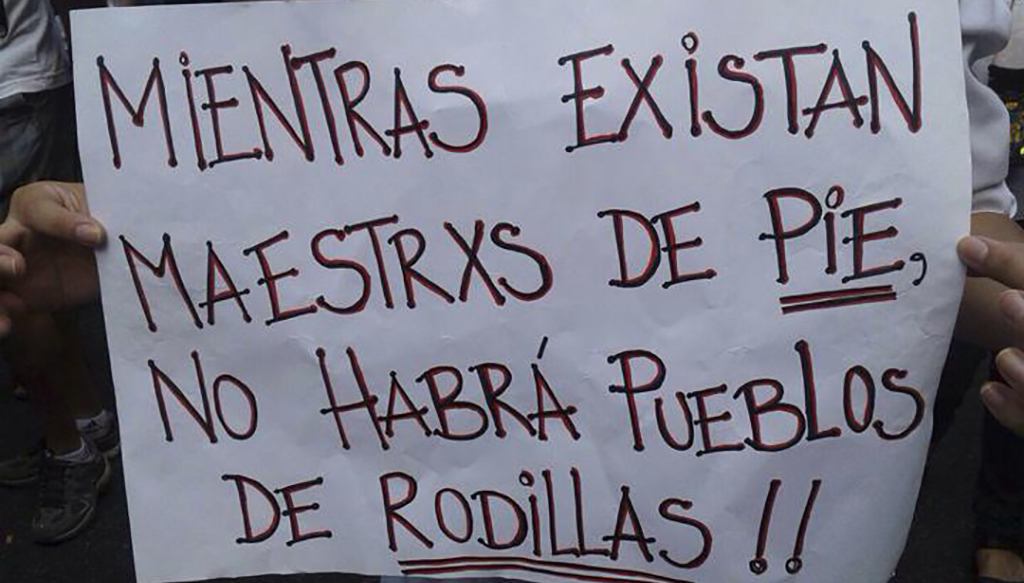 MIENTRAS EXISTAN
MAESTRXS DE PIE,
NO HABRÁ PUEBLOS
DE RODILLAS!!